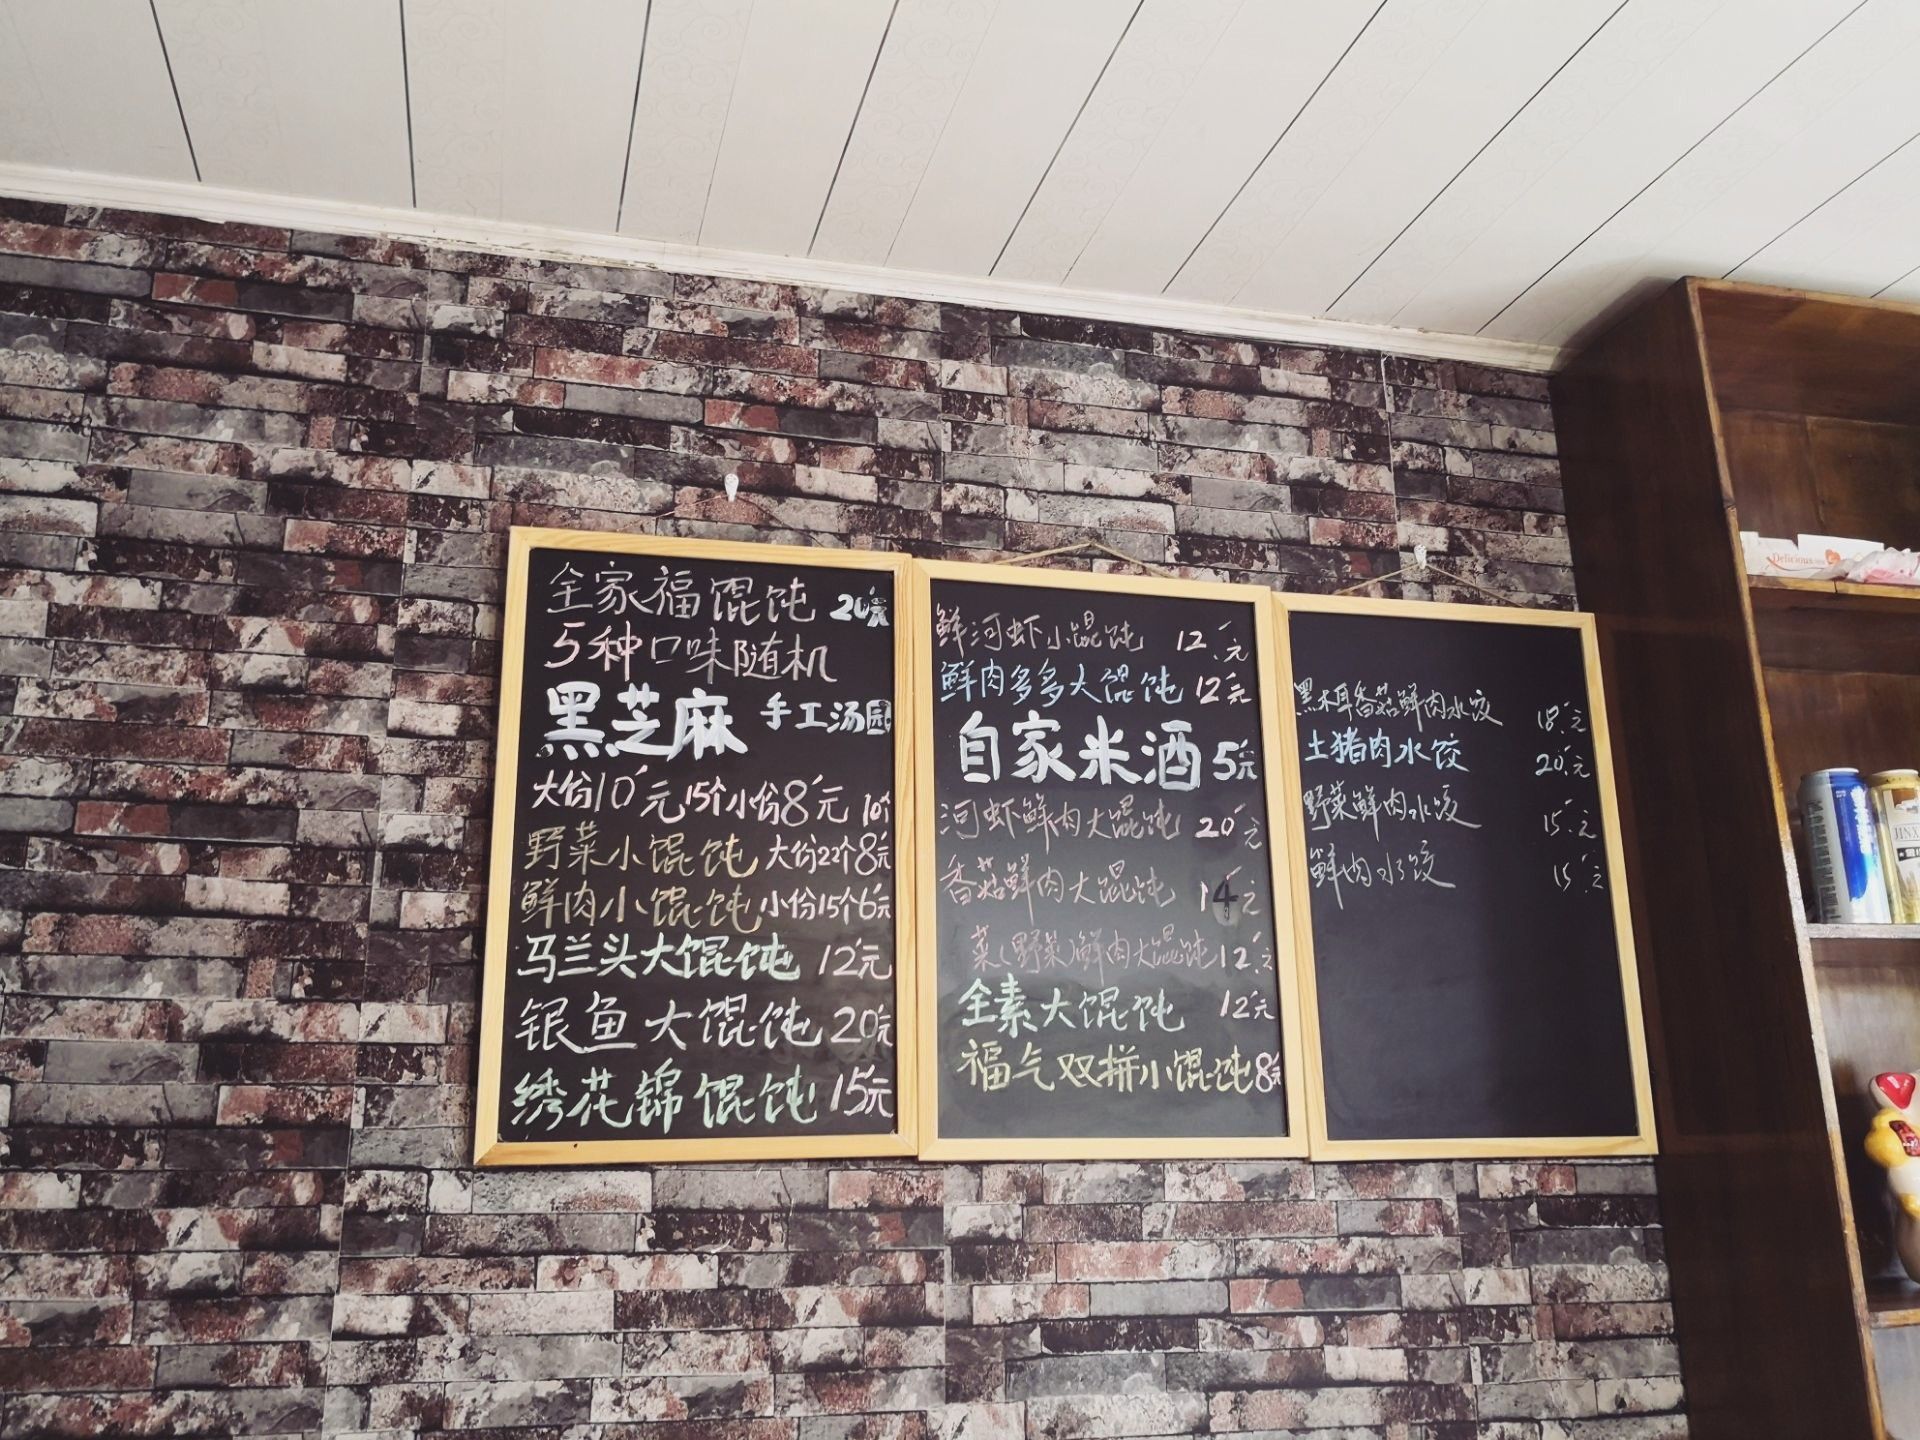 全家福馄饨 20元
5种口味随机
黑芝麻 手工汤园
大份10元15个小份8元 10个
野菜小馄饨 大份22个8元
鲜肉小馄饨 小份15个6元
马兰头大馄饨 12元
银鱼大馄饨 20元
绣花锦馄饨 15元
鲜河虾小馄饨 12.元
鲜肉多多大馄饨 12元
自家米酒 5元
河虾鲜肉大馄饨 20元
香菇鲜肉大馄饨 14元
菜(野菜)鲜肉大馄饨 12.元
全素大馄饨 12元
福气双拼小馄饨 8元
黑木耳香菇鲜肉水饺 18.元
土猪肉水饺 20.元
野菜鲜肉水饺 15.元
鲜肉水饺 15.元
Delicious
JINX